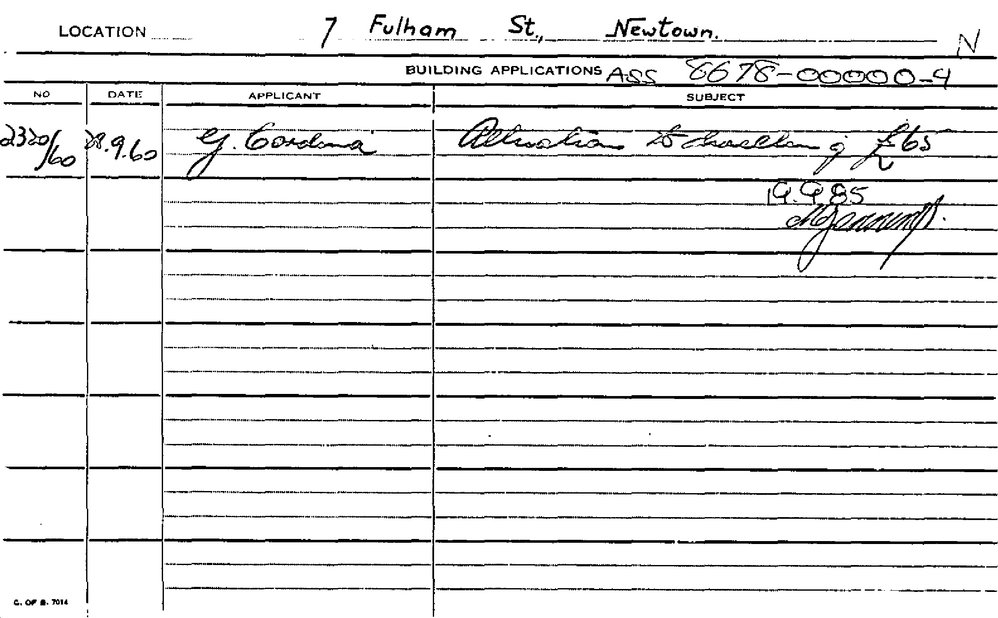 LOCATION 7 Fulham St., Newtown. N
BUILDING APPLICATIONS ASS 8678-00000-9
NO DATE APPLICANT SUBJECT
2320/60 28.9.60 G. Cordina Alteration to dwelling £65
19.9.85
C. OF S. 7014